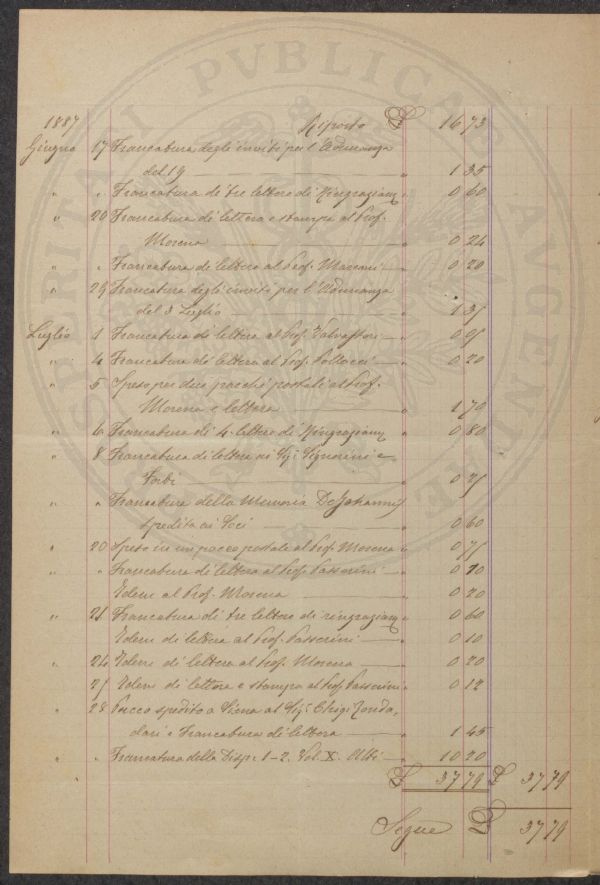 PROSPERITATI PVBLICAE AVGENDAE
1887 Riporto £ 16 73
Giugno 17 Francatura degli inviti per l'Adunanza
del 19 — " 1 35
" " Francatura di tre lettere di Ringraziam. " 0 60
" 20 Francatura di lettera e stampa al Prof.
Morena — " 0 24
" " Francatura di lettera al Prof. Marconi — " 0 20
" 29 Francatura degli inviti per l'Adunanza
del 3 Luglio — " 1 35
Luglio 1 Francatura di lettera al Prof. — " 0 05
" 4 Francatura di lettera al Prof. Pollacci — " 0 20
" 5 Spese per due pacchi postali al Prof.
Morena e lettera — " 1 70
" 6 Francatura di 4 lettere di Ringraziam. " 0 80
" 8 Francatura di lettere ai Sig.i Signorini e
— " 0 25
" " Francatura della Memoria De Johannis
spedita ai Soci — " 0 60
" 20 Spese in un pacco postale al Prof. Morena " 0 75
" " Francatura di lettera al Prof. Passerini — " 0 10
Idem al Prof. Morena — " 0 20
" 21 Francatura di tre lettere di ringraziam. " 0 60
Idem di lettera al Prof. Passerini — " 0 10
" 24 Idem di lettera al Prof. Morena — " 0 20
25 Idem di lettera e stampa al Prof. Passerini " 0 12
" 28 Pacco spedito a Siena al Sig.
e Francatura di lettera — " 1 45
" " Francatura della Disp. 1-2. Vol. X. Atti — " 10 20
£ 37 79 £ 37 79
Segue £ 37 79